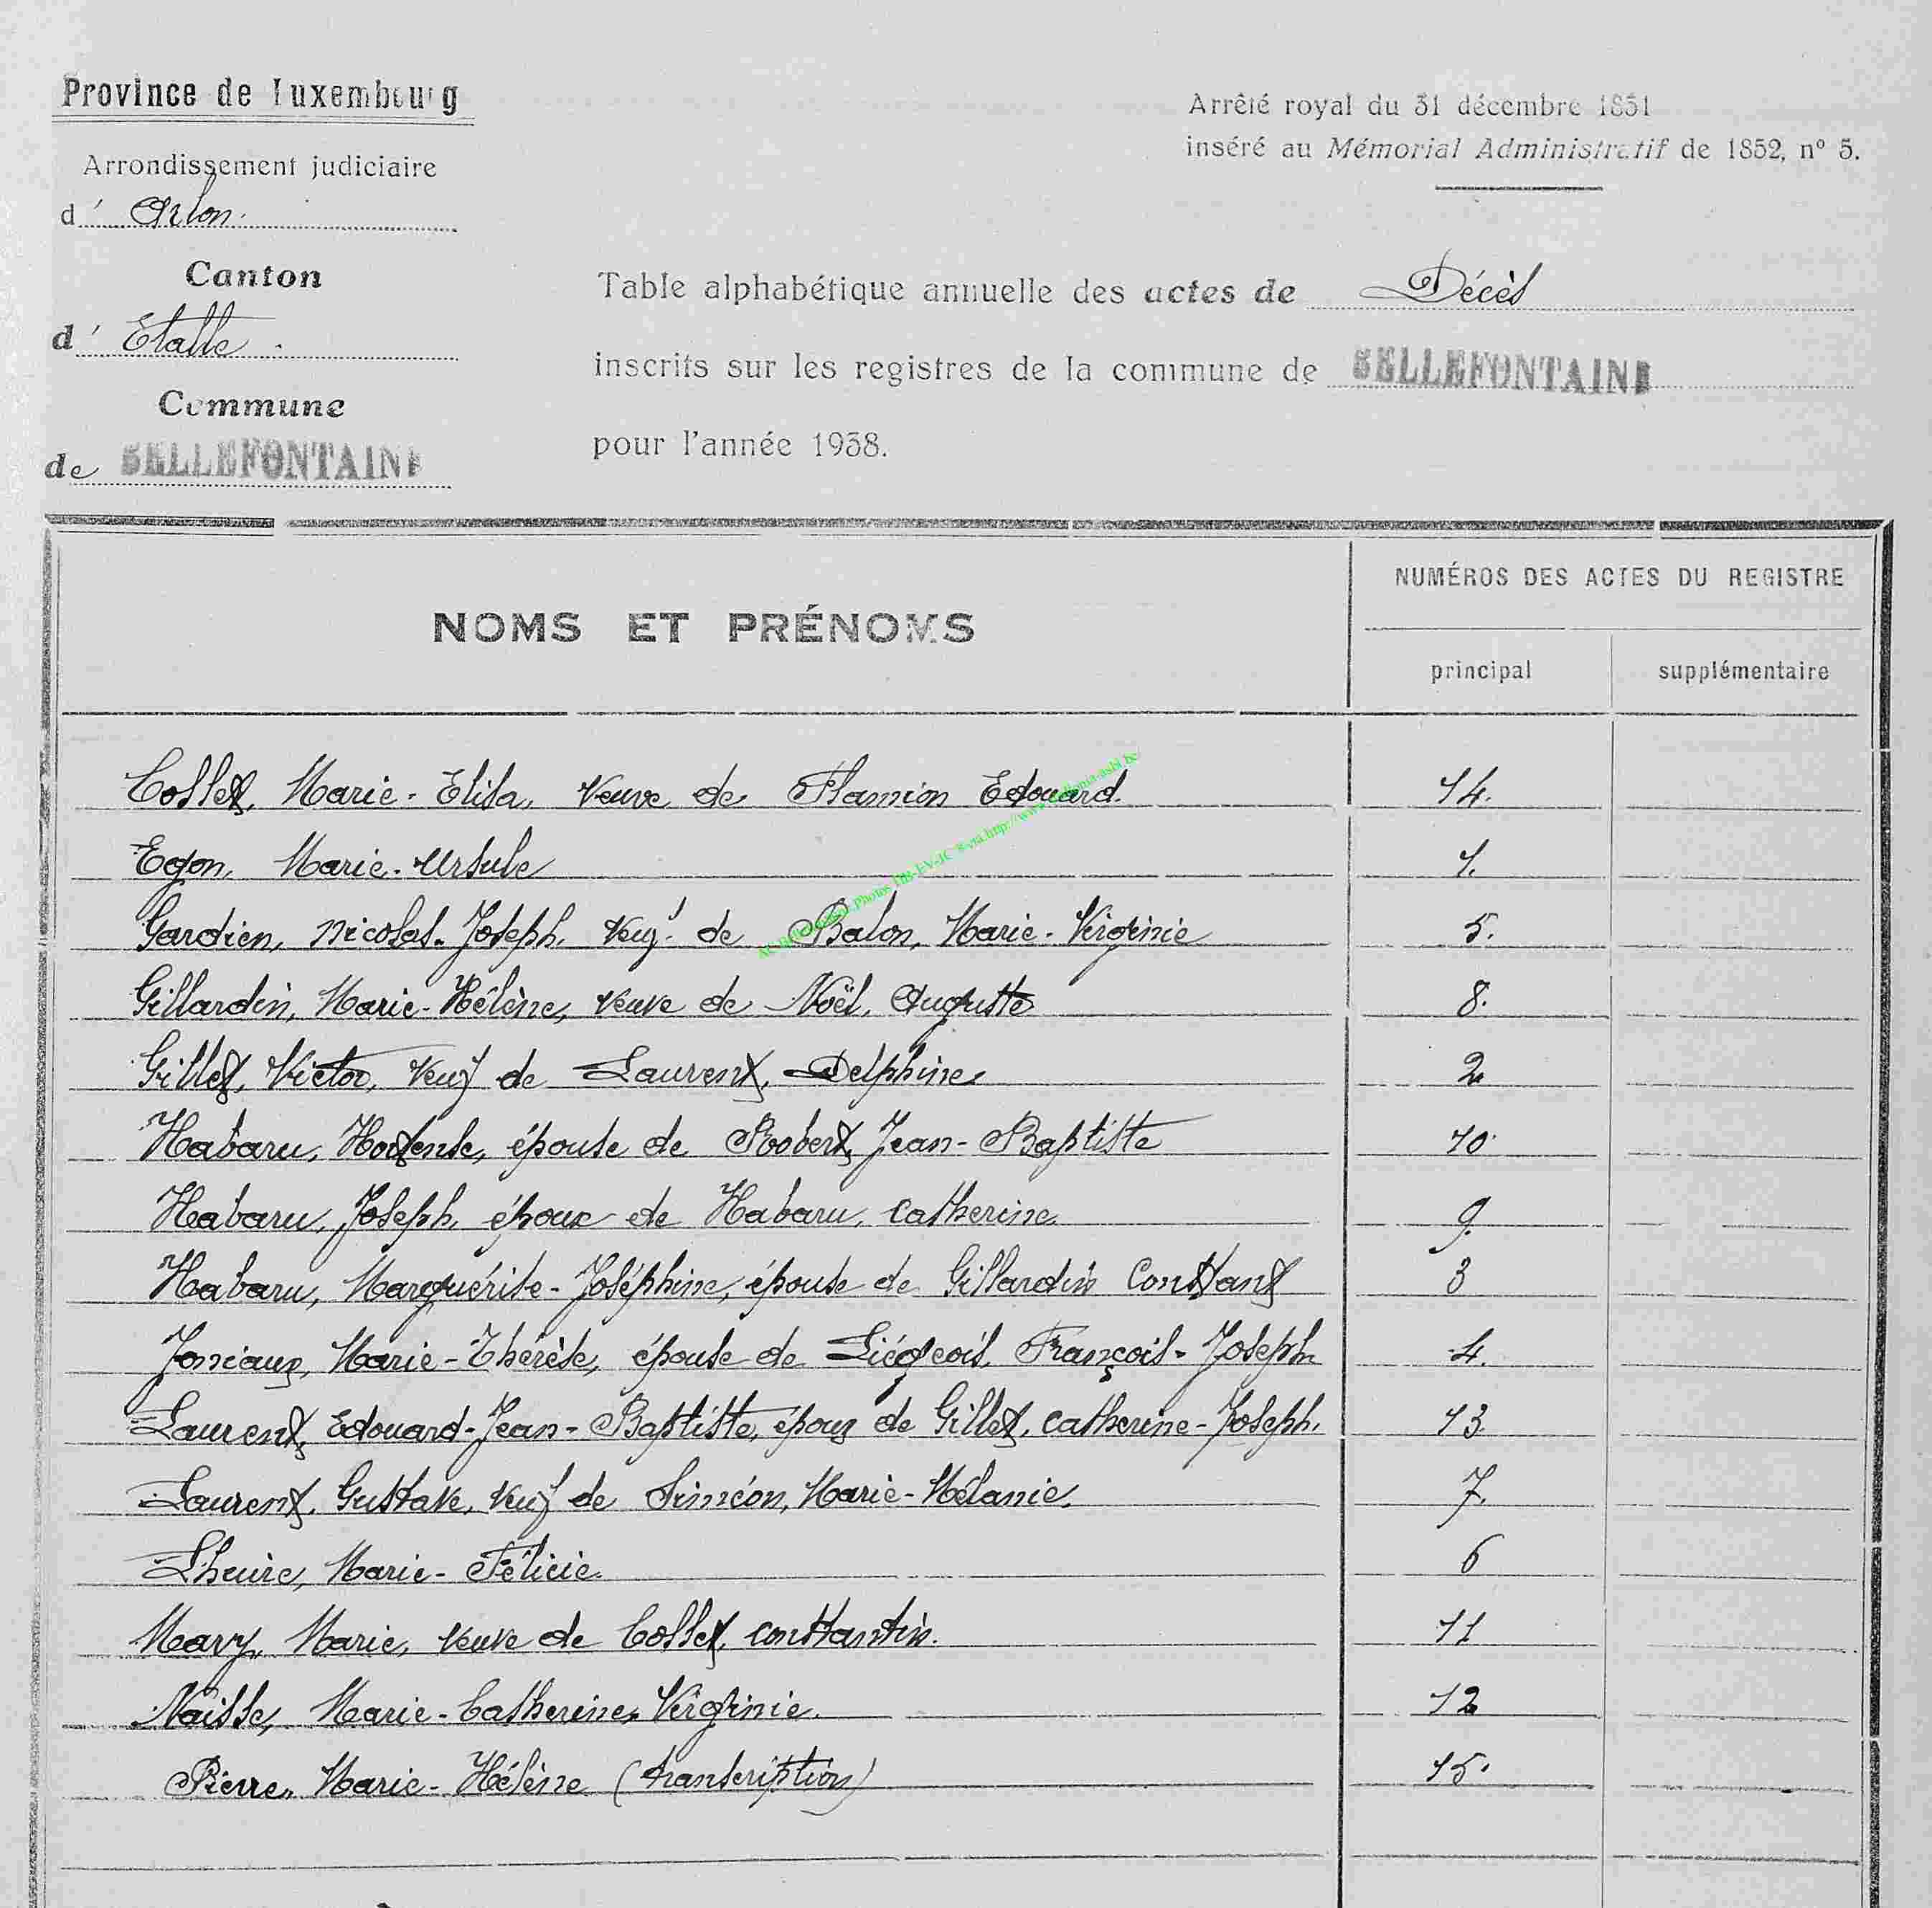 Province de Luxembourg
Arrêté royal du 31 décembre 1851
inséré au Mémorial Administratif de 1852, nº 5.
Arrondissement judiciaire
d' Arlon.
Canton
d' Etalle.
Commune
de BELLEFONTAINE
Table alphabétique annuelle des actes de Décès
inscrits sur les registres de la commune de BELLEFONTAINE
pour l'année 1938.
NOMS ET PRÉNOMS
NUMÉROS DES ACTES DU REGISTRE
principal supplémentaire
Collet, Marie-Elisa, Veuve de Flamion Edouard. 14.
Egon, Marie-Ursule 1.
Gardien, Nicolas-Joseph, Veuf de Balon, Marie-Virginie 5.
Gillardin, Marie-Hélène, veuve de Noël, Auguste 8.
Gillet, Victor, Veuf de Laurent, Delphine 2
Habaru, Hortense, épouse de Robert, Jean-Baptiste 10.
Habaru, Joseph, époux de Habaru, Catherine 9.
Habaru, Marguérite-Joséphine, épouse de Gillardin Constant 3
Joniaux, Marie-Thérèse, épouse de Liégeois, François-Joseph 4.
Laurent, Edouard-Jean-Baptiste, époux de Gillet, Catherine-Joseph. 13.
Laurent, Gustave, Veuf de Siméon, Marie-Mélanie. 7.
Lheure, Marie-Félicie. 6
Mary, Marie, veuve de Collet, constantin. 11
Naisse, Marie-Catherine, Virginie. 12
Pierre, Marie-Hélène (transcription) 15.